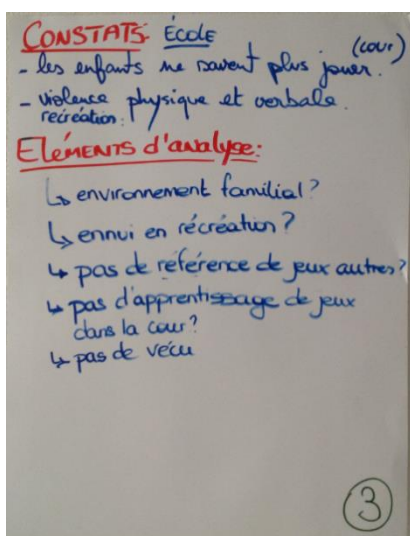 CONSTATS: École
- les enfants ne savent plus jouer. (cour)
- violence physique et verbale.
recréation:
Eléments d'analyse:
↳ environnement familial?
↳ ennui en récréation?
↳ pas de référence de jeux autres?
↳ pas d'apprentissage de jeux
dans la cour?
↳ pas de vécu
3